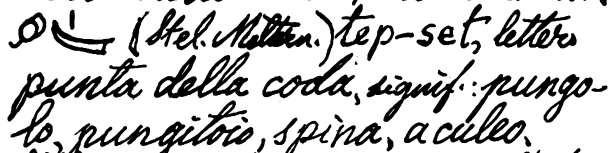 (Stel. Mettern.) tep-set, letter.
punta della coda, signif.: pungo-
lo, pungitoio, spina, aculeo.